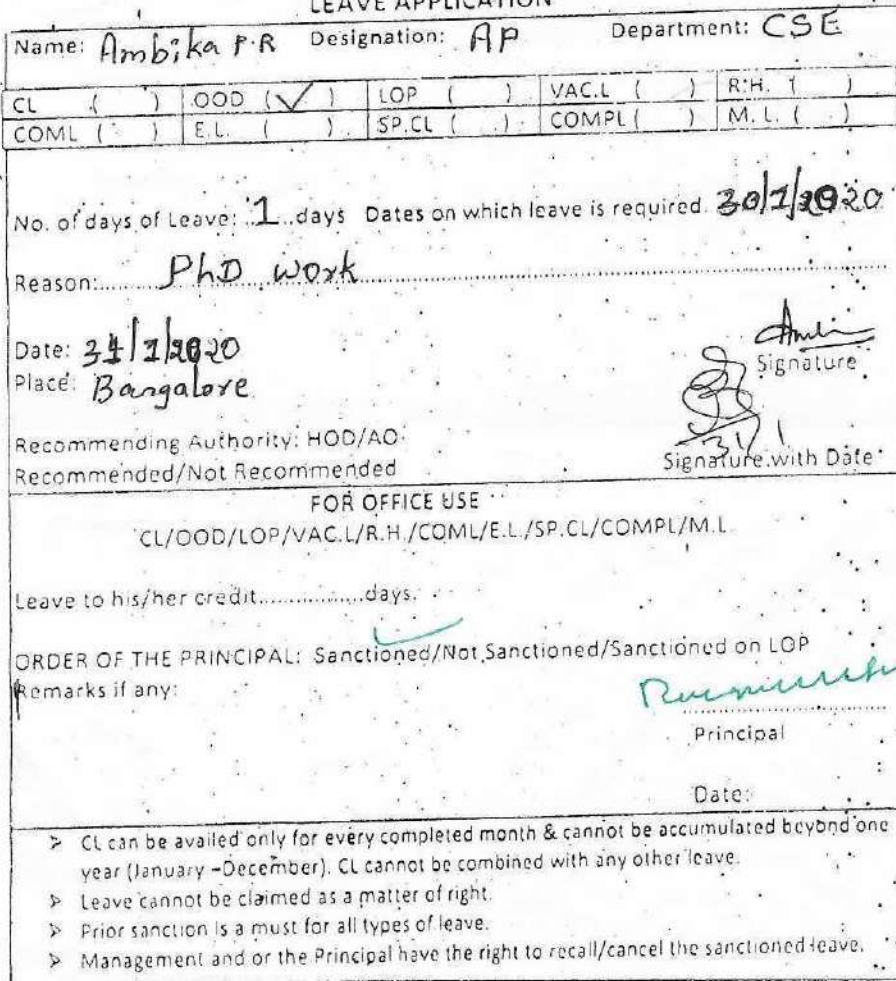 LEAVE APPLICATION
Name: Ambika P.R Designation: AP Department: CSE
CL ( ) OOD (✓) LOP ( ) VAC.L ( ) R.H. ( )
COML ( ) E.L. ( ) SP.CL ( ) COMPL ( ) M.L. ( )
No. of days of Leave: 1 days Dates on which leave is required. 30/1/2020
Reason: PhD work
Date: 31/1/2020
Place: Bangalore
Signature
31/1
Recommending Authority: HOD/AO
Recommended/Not Recommended Signature with Date
FOR OFFICE USE
CL/OOD/LOP/VAC.L/R.H./COML/E.L./SP.CL/COMPL/M.L.
Leave to his/her credit................days.
ORDER OF THE PRINCIPAL: Sanctioned/Not Sanctioned/Sanctioned on LOP
Remarks if any:
Principal
Date:
➢ CL can be availed only for every completed month & cannot be accumulated beyond one
year (January –December). CL cannot be combined with any other leave.
➢ Leave cannot be claimed as a matter of right.
➢ Prior sanction is a must for all types of leave.
➢ Management and or the Principal have the right to recall/cancel the sanctioned leave.